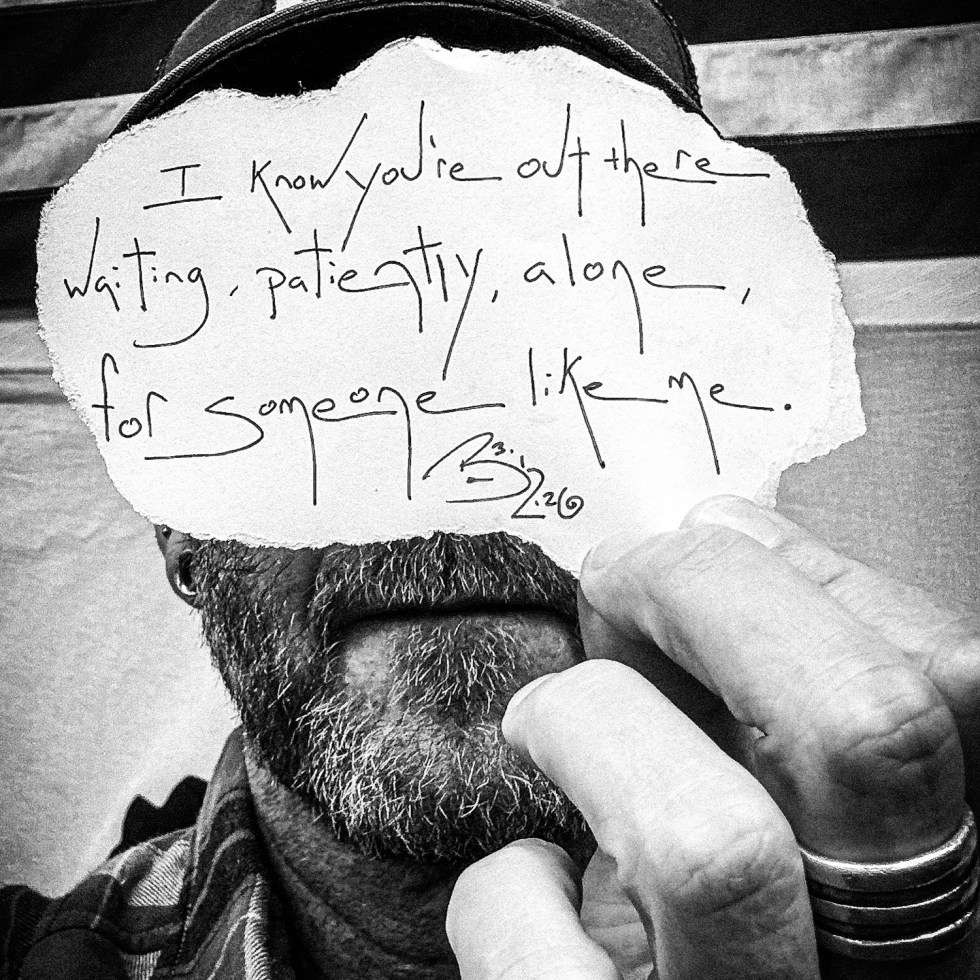 I know you're out there
waiting, patiently, alone,
for someone like me.
B 3.12.26